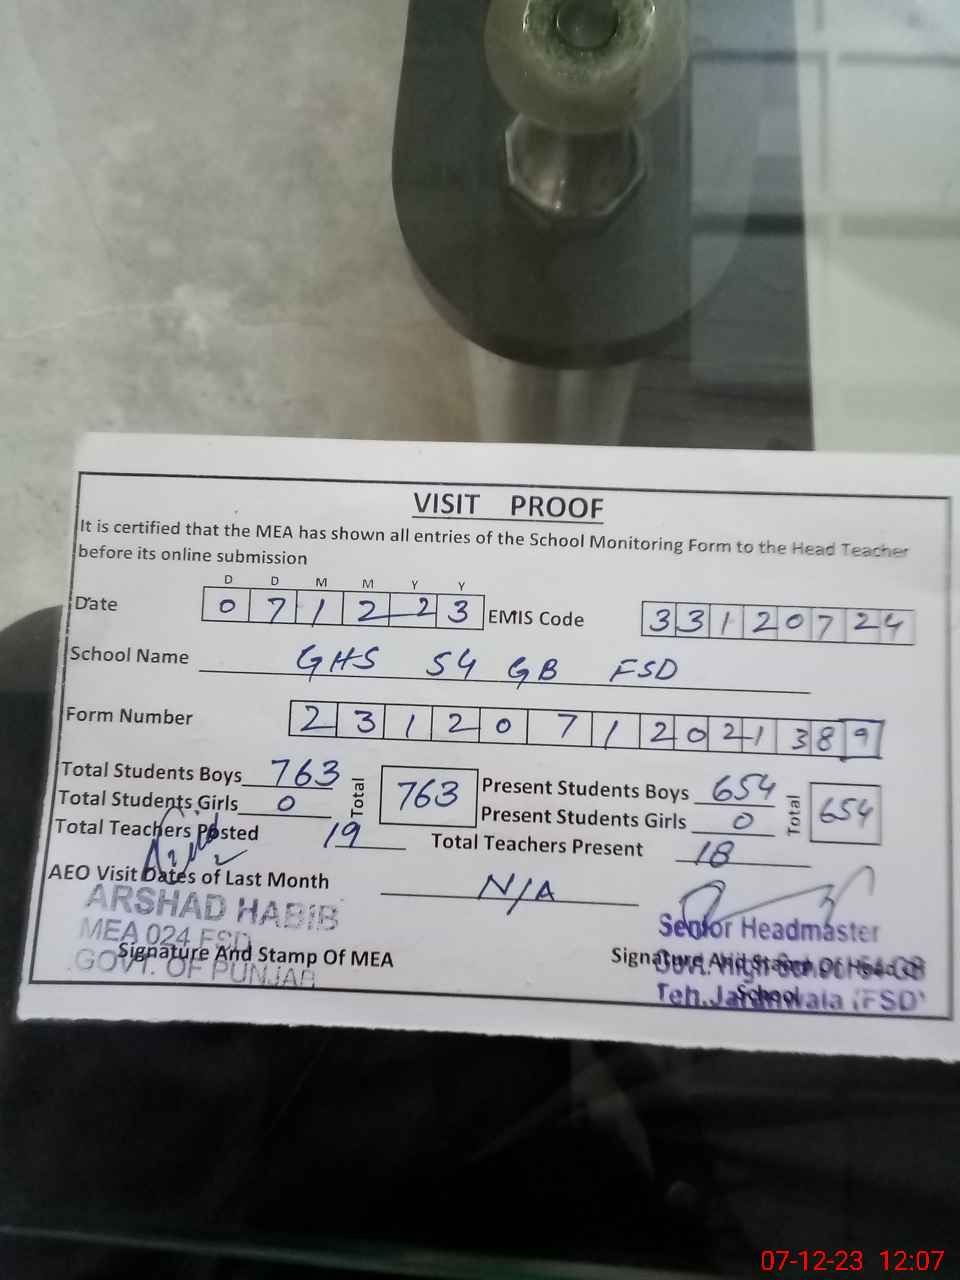 VISIT PROOF
It is certified that the MEA has shown all entries of the School Monitoring Form to the Head Teacher
before its online submission
D D M M Y Y
Date 0 7 1 2 2 3 EMIS Code 3 3 1 2 0 7 2 4
School Name GHS 54 GB FSD
Form Number 2 3 1 2 0 7 1 2 0 2 1 3 8 9
Total Students Boys 763 Total 763 Present Students Boys 654 Total 654
Total Students Girls 0 Present Students Girls 0
Total Teachers Posted 19 Total Teachers Present 18
AEO Visit Dates of Last Month N/A
ARSHAD HABIB
MEA 024 FSD
GOVT. OF PUNJAB
Signature And Stamp Of MEA
Senior Headmaster
Signature And Stamp Of Head Of
School
Govt. High School 54 GB
Teh. Jaranwala (FSD)
07-12-23 12:07